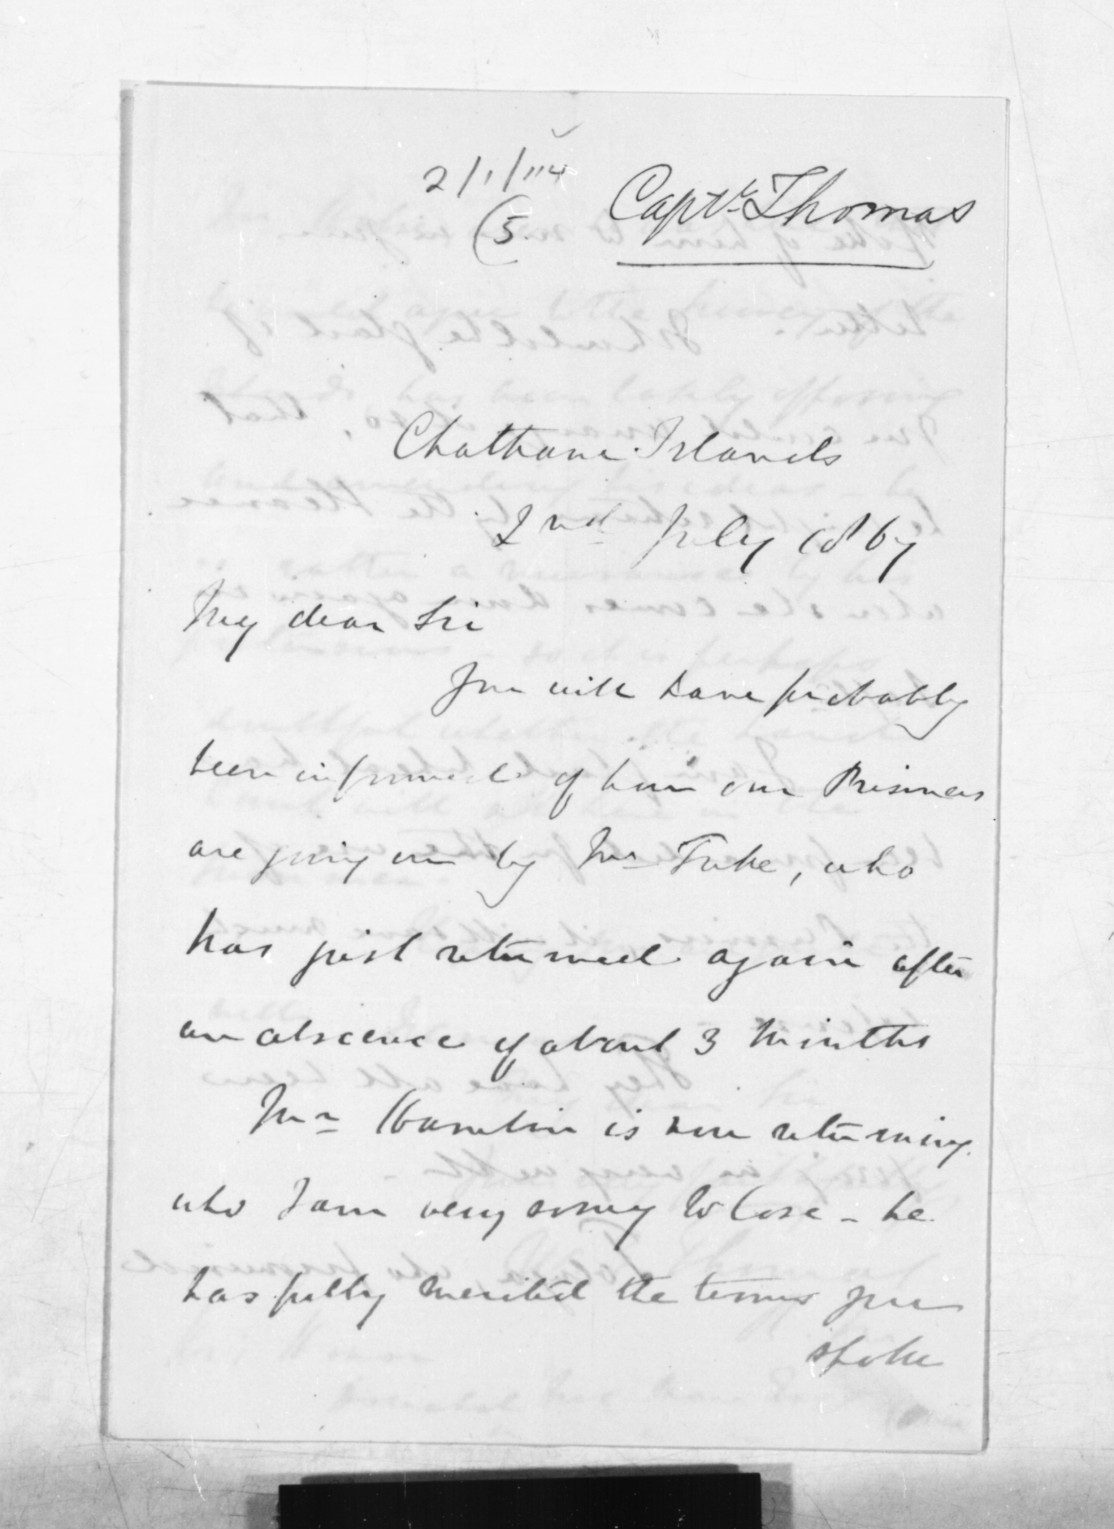 2/1/114
(5.
Captn. Thomas
Chatham Islands
2nd July 1867
My dear Sir
You will have probably
been informed of how our Prisoners
are going on by Mr Tuke, who
has just returned again after
an abscence of about 3 Months
Mr Hamlin is now returning
who I am very sorry to lose - he
has fully merited the terms you
spoke